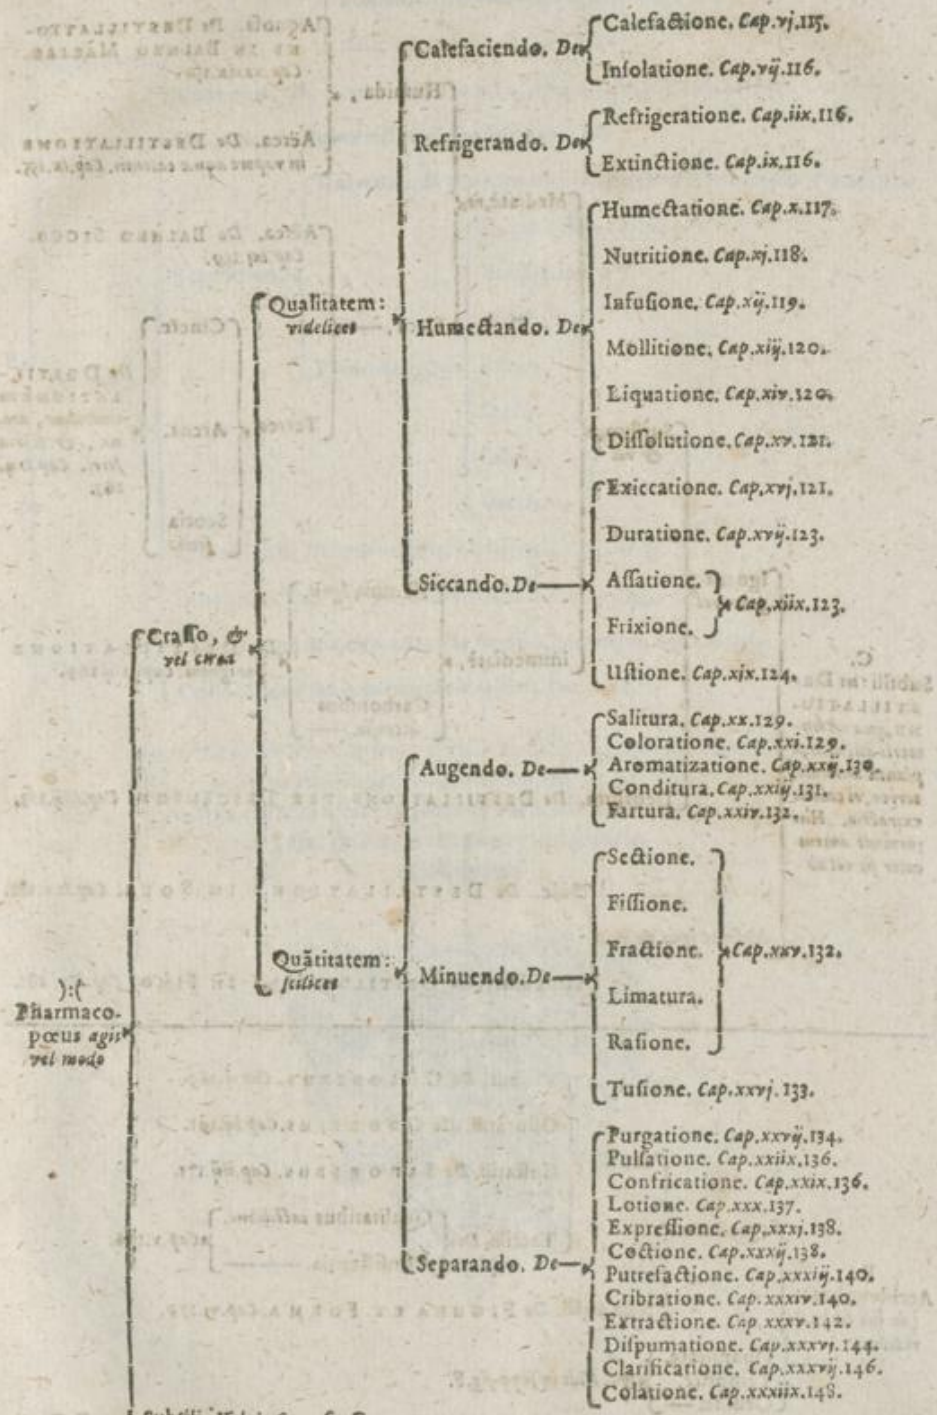 ):(
Pharmaco-
pœus agit
vel modo
Crasso, &
vel circa
Qualitatem:
videlicet
Calefaciendo. De
Calefactione. Cap.vj.115.
Insolatione. Cap.vij.116.
Refrigerando. De
Refrigeratione. Cap.iix.116.
Extinctione. Cap.ix.116.
Humectando. De
Humectatione. Cap.x.117.
Nutritione. Cap.xj.118.
Infusione. Cap.xij.119.
Mollitione. Cap.xiij.120.
Liquatione. Cap.xiv.120.
Dissolutione. Cap.xv.121.
Siccando. De
Exiccatione. Cap.xvj.121.
Duratione. Cap.xvij.123.
Assatione.
Frixione.
Cap.xiix.123.
Ustione. Cap.xix.124.
Quãtitatem:
scilicet
Augendo. De
Salitura. Cap.xx.129.
Coloratione. Cap.xxi.129.
Aromatizatione. Cap.xxij.130.
Conditura. Cap.xxiij.131.
Fartura. Cap.xxiv.132.
Minuendo. De
Sectione.
Fissione.
Fractione.
Limatura.
Rasione.
Cap.xxv.132.
Tusione. Cap.xxvj.133.
Separando. De
Purgatione. Cap.xxvij.134.
Pulsatione. Cap.xxiix.136.
Confricatione. Cap.xxix.136.
Lotione. Cap.xxx.137.
Expressione. Cap.xxxj.138.
Coctione. Cap.xxxij.138.
Putrefactione. Cap.xxxiij.140.
Cribratione. Cap.xxxiv.140.
Extractione. Cap.xxxv.142.
Dispumatione. Cap.xxxvj.144.
Clarificatione. Cap.xxxvij.146.
Colatione. Cap.xxxiix.148.